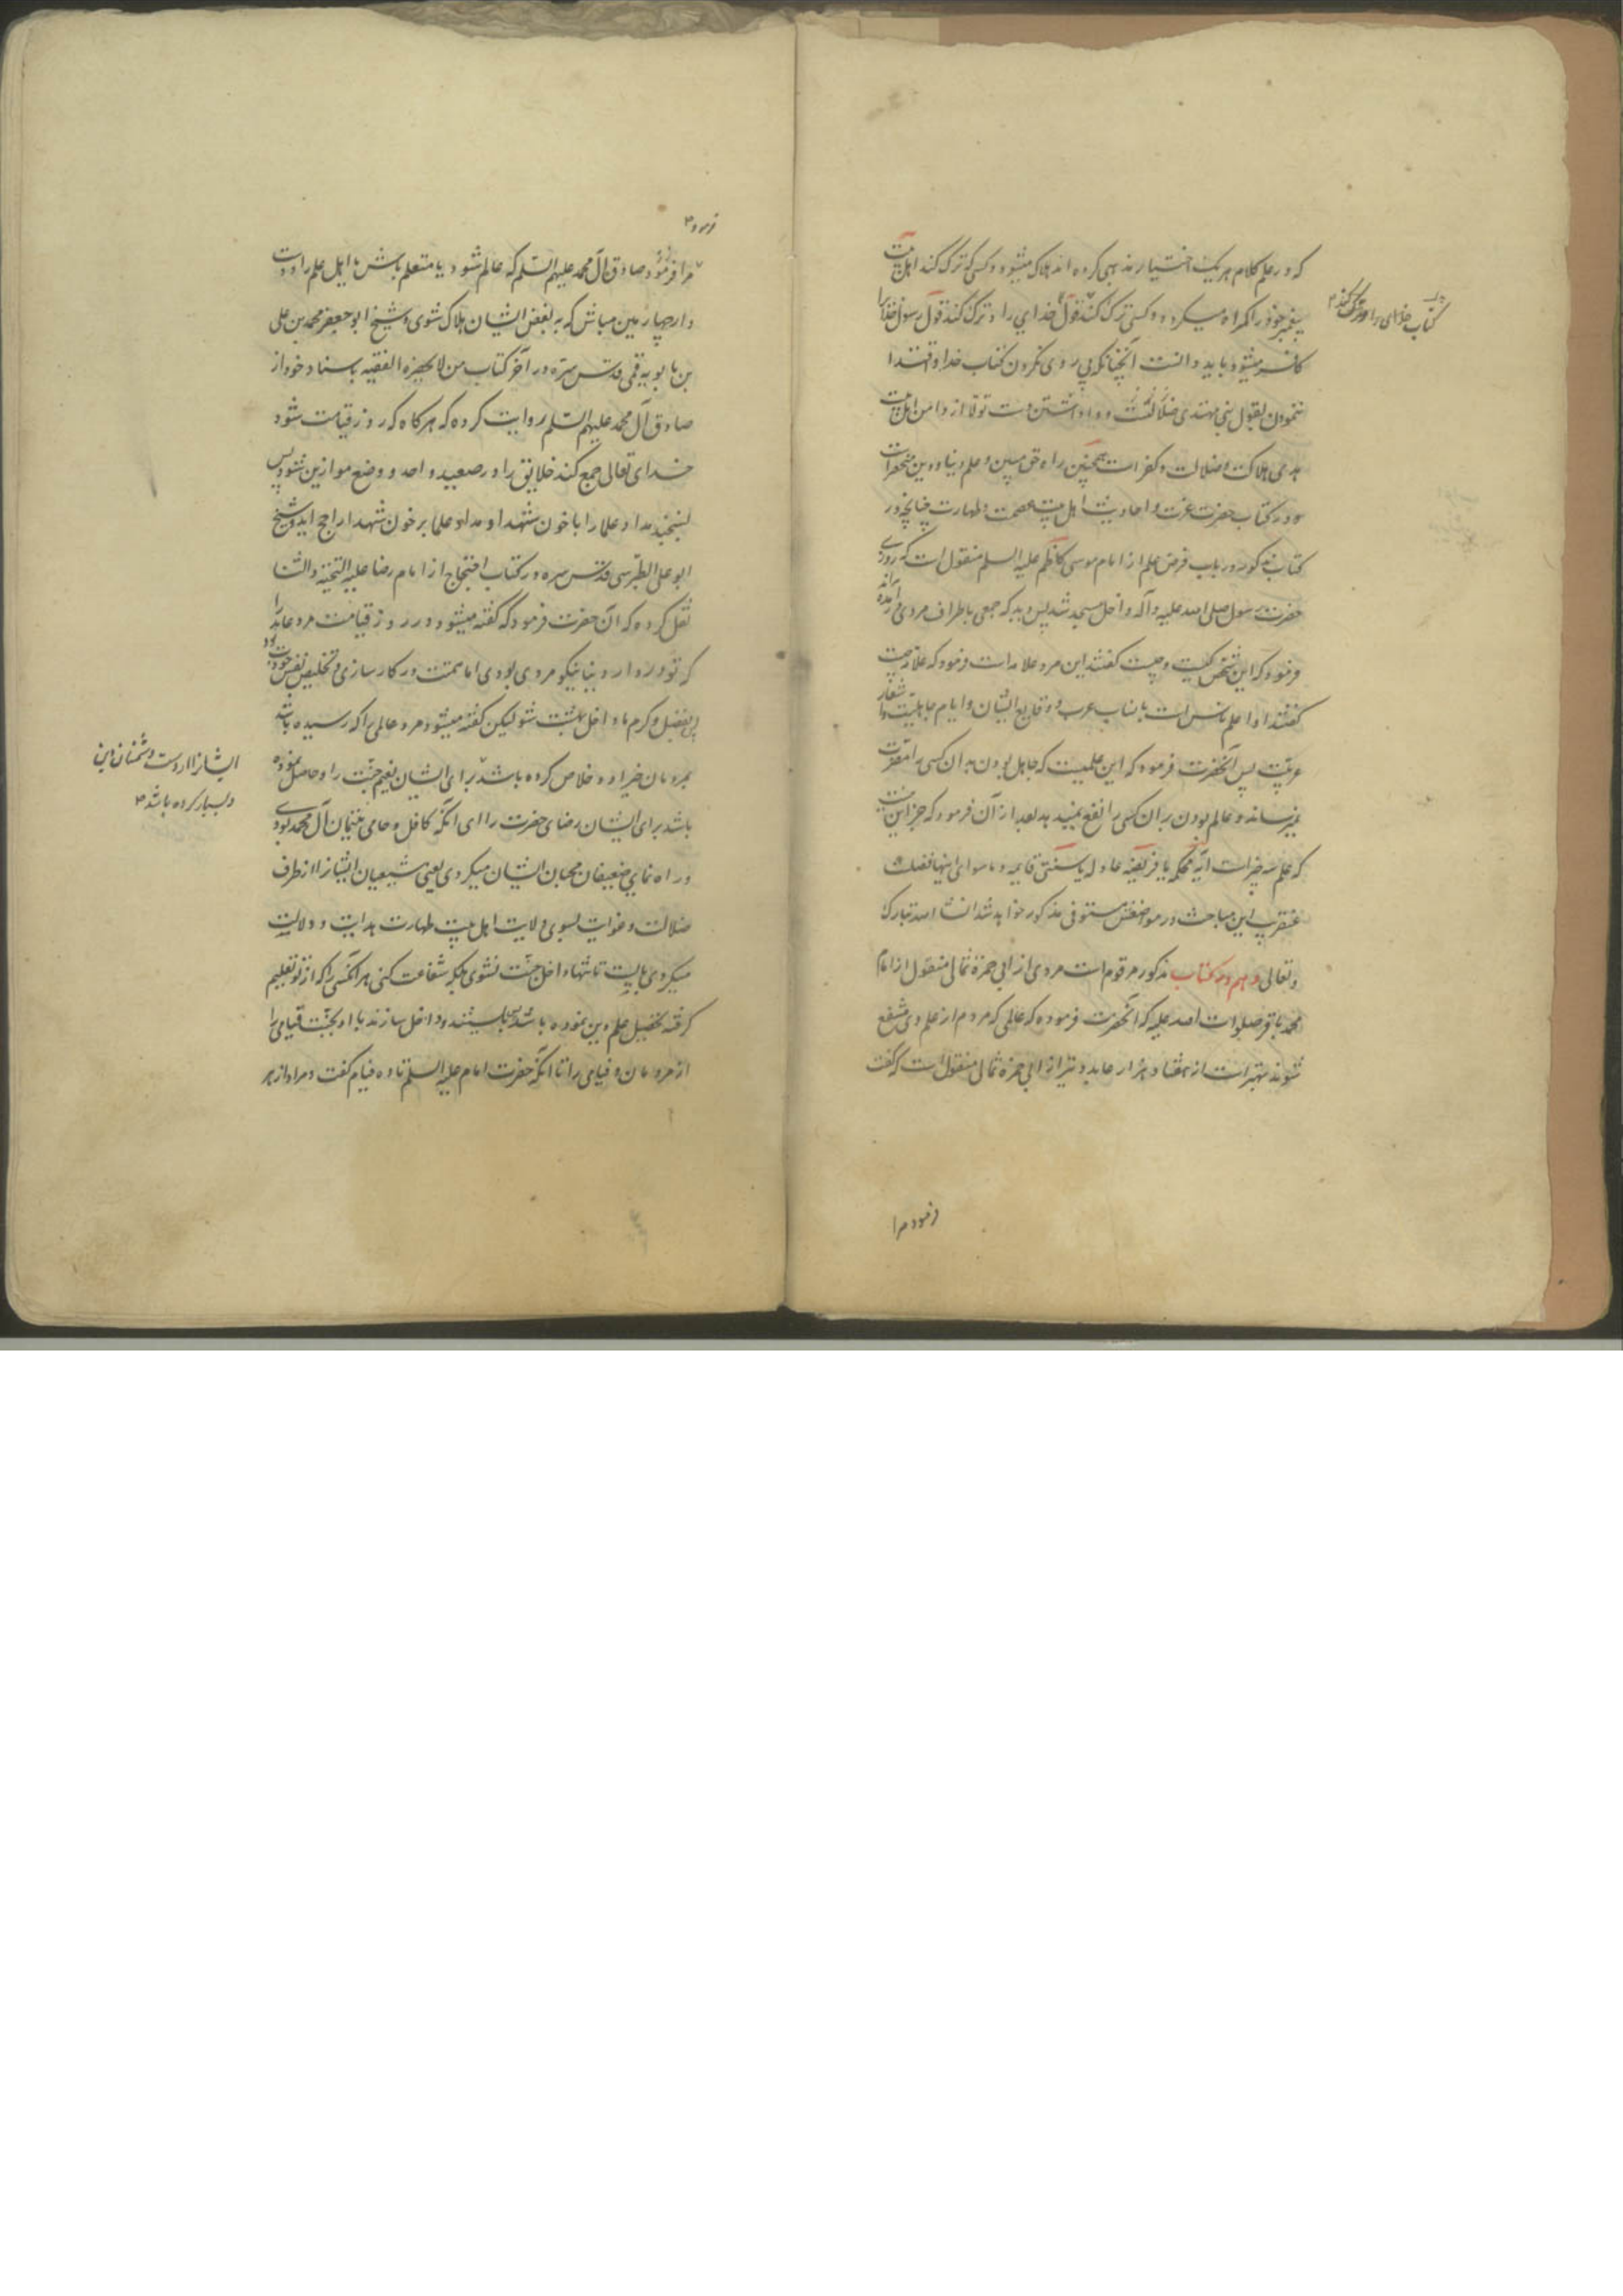 که در علم کلام هر یک اختیار مذهبی کرده اند هلاک میشود و کسی که ترک کند اهل بیت
پیغمبر خود را گمراه میکردد و کسی ترک کند قول خدایی را و ترک کند قول رسول خدا را
کتاب خدای را و ترک کند
کافر میشود باید دانست آنچنانکه پی روی نکردن کتاب خدا و اقتدا
ننمودن بقول نبی مهتدی ضلالتست و واداشتن دست تولا از دامن اهل بیت
هدی هلاکت و ضلالت و کفر است همچنین راه حق مبین و علم دنیا و دین منحصر است
در کتاب حضرت عزت و احادیث اهل بیت عصمت و طهارت چنانچه در
کتاب مذکور در باب فرض علم از امام موسی کاظم علیه السلم منقول است که روزی
حضرت رسول صلی الله علیه و آله داخل مسجد شد پس دید که جمعی باطراف مردی در آمده اند
فرمود که این شخص کیست و چیست کفتند این مرد علامه است فرمود که علامه چیست
کفتند او اعلم ناس است بانساب عرب و وقایع ایشان و ایام جاهلیت و اشعار
عربیت پس آنحضرت فرمود که این علمیست که جاهل بودن بدان کسی را مضرت
نمیرساند و عالم بودن بدان کسی را نفع نمیدهد بعد از آن فرمود که جز این نیست
که علم سه چیز است آیه محکمه یا فریضه عادله یا سنتی قایمه و ما سوای اینها فضلست
عنقریب این مباحث در مواضعش مستوفی مذکور خواهد شد انشا الله تبارک
و تعالی و هم در کتاب مذکور مرقوم است مروی از ابی حمزه ثمالی منقول از امام
محمد باقر صلوات الله علیه که آنحضرت فرموده که عالمی که مردم از علم وی منتفع
شوند بهتر است از هفتاد هزار عابد و نیز از ابی حمزه ثمالی منقول است که گفت
فرمود مرا
فرمود
مرا فرمود صادق آل محمد علیهم السلم که عالم شو و یا متعلم باش یا اهل علم را دوست
دار چهارمین مباش که به بغض ایشان هلاک شوی و شیخ ابو جعفر محمد بن علی
بن بابویه قمی قدس سره در آخر کتاب من لا یحضره الفقیه باسناد خود از
صادق آل محمد علیهم السلم روایت کرده که هر کاه که روز قیامت شود
خدای تعالی جمع کند خلایق را در صعید واحد و وضع موازین شود پس
بسنجند مداد علما را با خون شهدا و مداد علما بر خون شهدا راجح آید و شیخ
ابو علی الطبرسی قدس سره در کتاب احتجاج از امام رضا علیه التحیة والثنا
نقل کرده که آن حضرت فرمود که کفته میشود در روز قیامت مرد عابد را
که تو در دار دنیا نیکو مردی بودی اما همتت در کار سازی و تخلیص نفس خودت بود
پس بفضل و کرم ما داخل بهشت شو لیکن کفته میشود مرد عالمی را که رسیده باشد
بمردمان خیر او و خلاص کرده باشد برای ایشان نعیم جنت را و حاصل نموده
ایشان را از دست دشمنان دین
و بسیار کرده باشد
باشد برای ایشان رضای حضرت را ای آنکه کافل و حامی یتیمان آل محمد بودی
و راه نمای ضعیفان محبان ایشان میکردی یعنی شیعیان ایشان را از طرف
ضلالت و غوایت بسوی ولایت اهل بیت طهارت هدایت و دلالت
میکردی بایست تا تنها داخل جنت نشوی بلکه شفاعت کنی هر آنکسی را که از تو تعلیم
کرفته تحصیل علم دین نموده باشد پس بایستند و داخل سازند با او بجنت فیامی را
از مردمان و فیامی را تا آنکه حضرت امام علیه السلم تا ده فیام گفت و مراد از هر